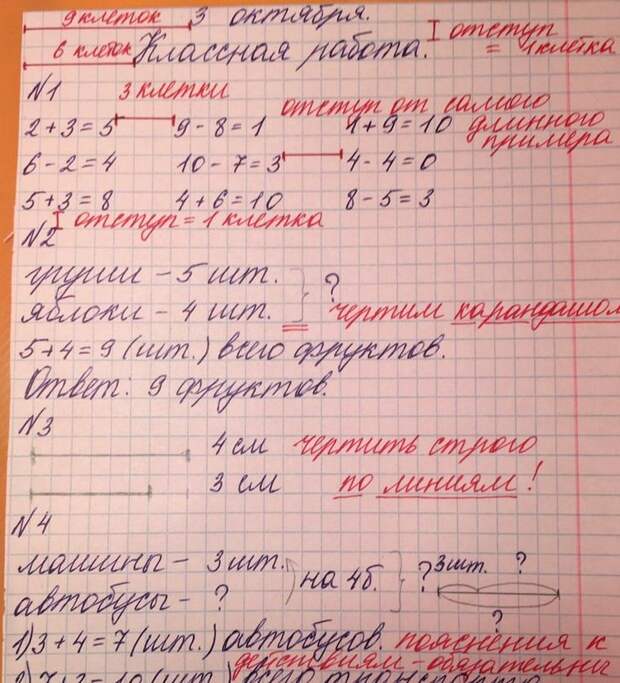 9 клеток 3 октября.
6 клеток Классная работа. отступ = 1 клетка
№1 3 клетки
отступ от самого длинного примера
2+3=5 9-8=1 1+9=10
6-2=4 10-7=3 4-4=0
5+3=8 4+6=10 8-5=3
отступ = 1 клетка
№2
груши - 5 шт.
яблоки - 4 шт. } ? чертим карандашом
5+4=9 (шт.) всего фруктов.
Ответ: 9 фруктов.
№3
4 см чертить строго
3 см по линиям!
№4
машины - 3 шт. 3шт. ?
автобусы - ? на 4б. } ? ?
1) 3+4=7 (шт.) автобусов. пояснения к
действиям - обязательны
2) 7+3=10 (шт.) всего транспорта